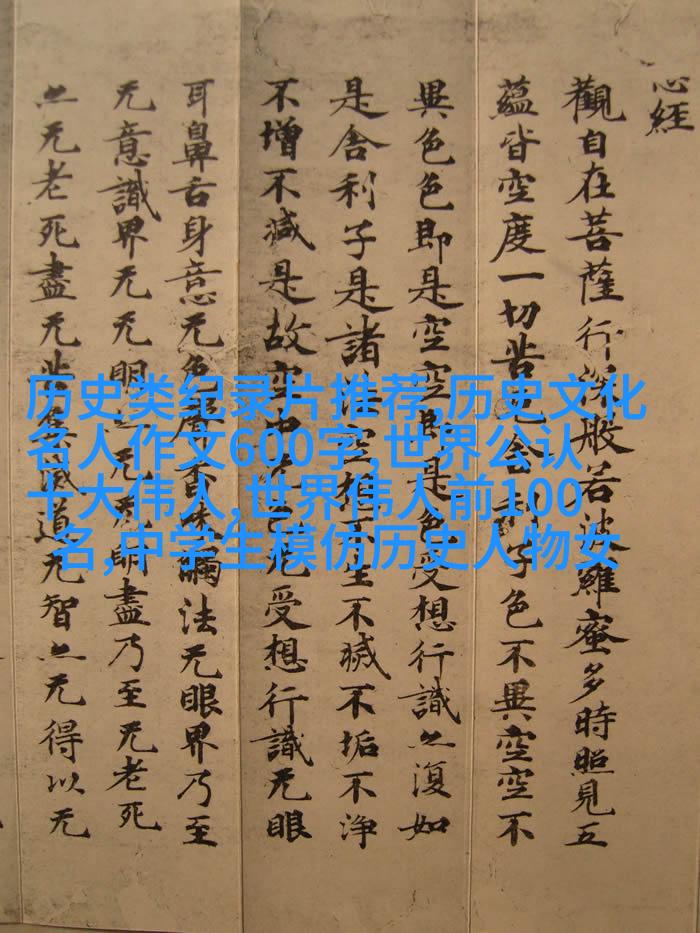 心經
觀自在菩薩行深般若波羅蜜多時照見五
蘊皆空度一切苦厄舍利子色不異空空不
異色色即是空空即是色受想行識亦復如
是舍利子是諸法空相不生不滅不垢不淨
不增不減是故空中无色无受想行識无眼
耳鼻舌身意无色聲香味觸法无眼界乃至
无意識界无无明亦无无明盡乃至无老死
亦无老死盡无苦集滅道无智亦无得以无
历史类纪录片推荐,历史文化
名人作文600字,世界公认
十大伟人,世界伟人前100
名,中学生模仿历史人物女